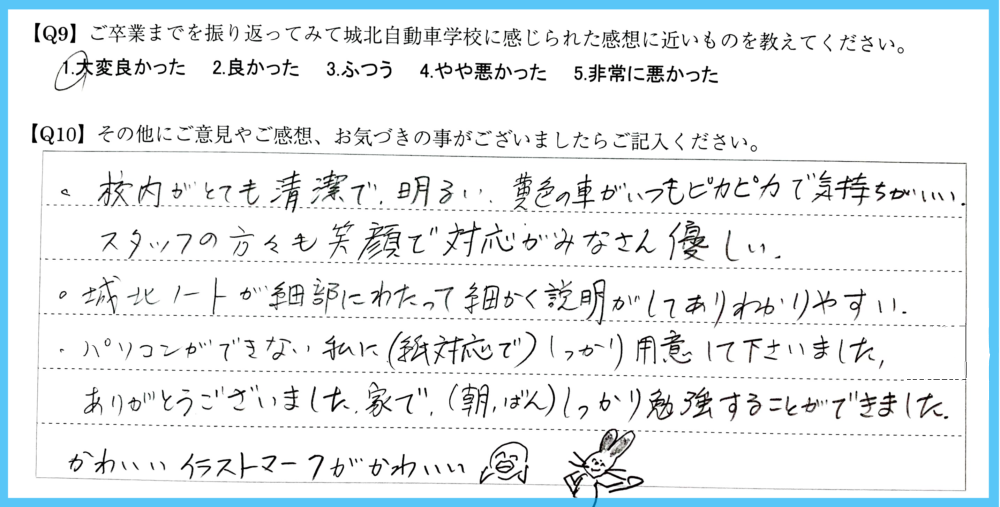 【Q9】ご卒業までを振り返ってみて城北自動車学校に感じられた感想に近いものを教えてください。
1.大変良かった 2.良かった 3.ふつう 4.やや悪かった 5.非常に悪かった
【Q10】その他にご意見やご感想、お気づきの事がございましたらご記入ください。
。校内がとても清潔で、明るい、黄色の車がいつもピカピカで気持ちがいい。
スタッフの方々も笑顔で対応がみなさん優しい。
。城北ノートが細部にわたって細かく説明がしてありわかりやすい。
・パソコンができない私に(紙対応で)しっかり用意して下さいました,
ありがとうございました。家で、(朝,ばん)しっかり勉強することができました。
かわいいイラストマークがかわいい